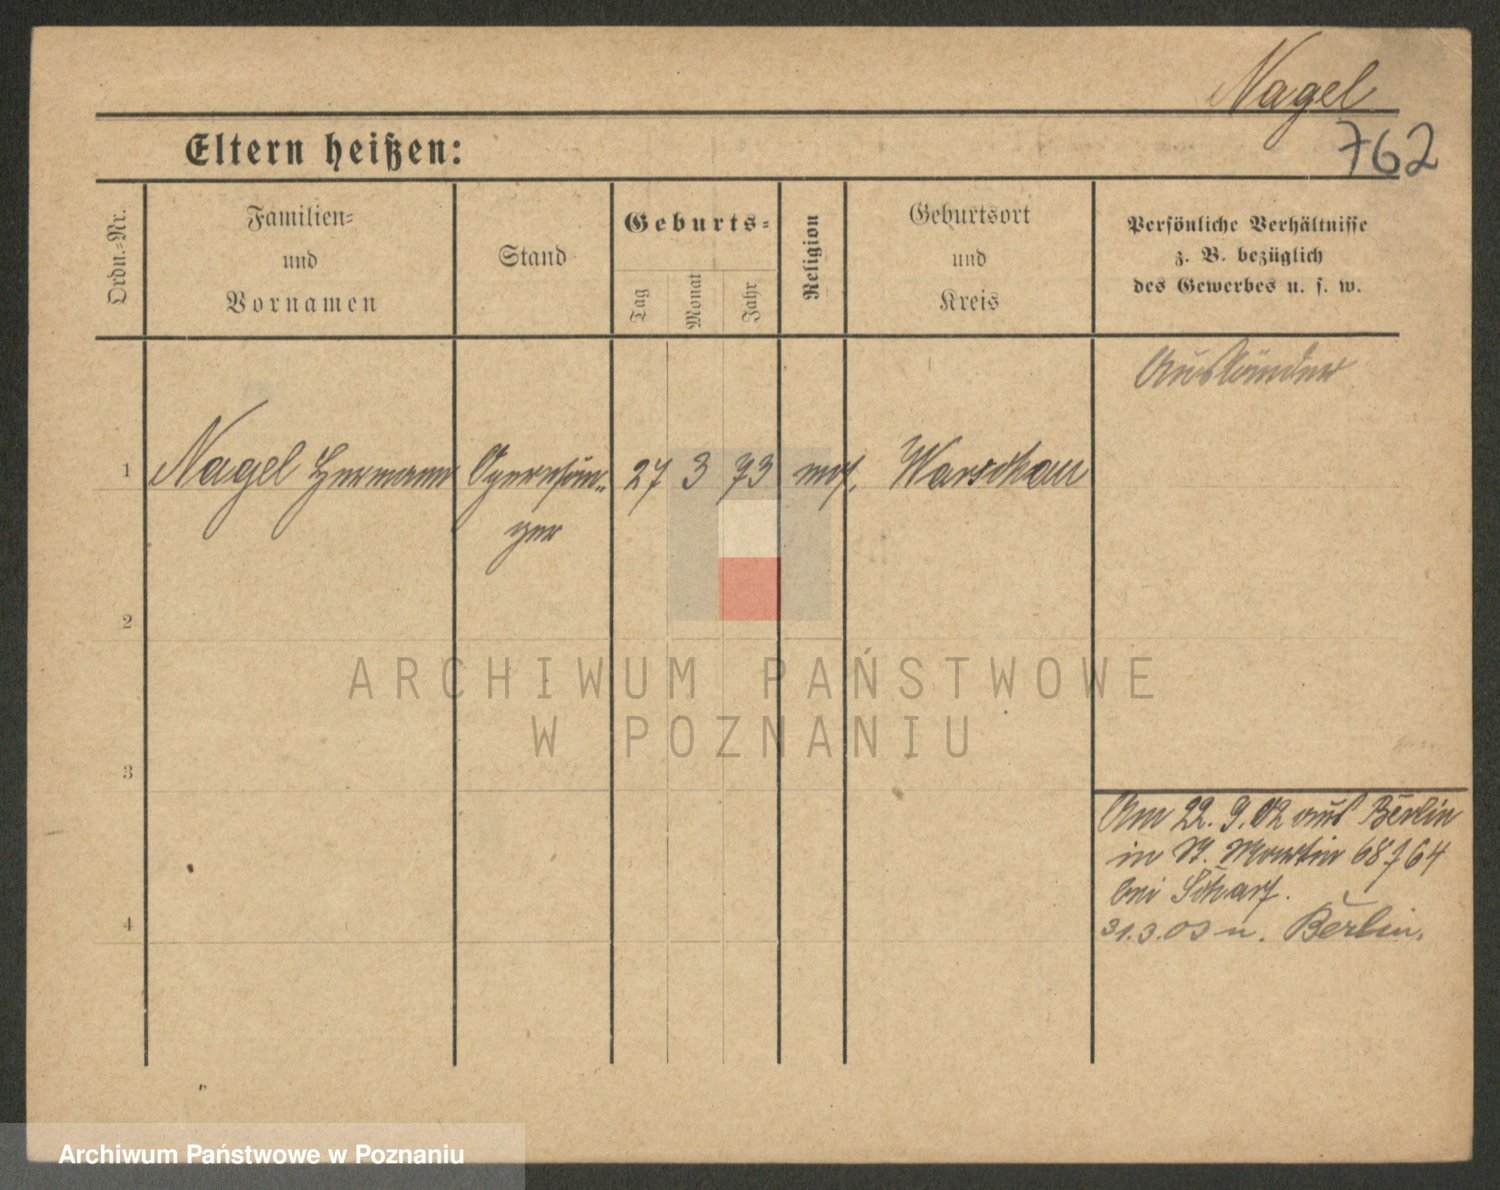 Nagel
762
Eltern heißen:
Ordn.-Nr.
Familien-
und
Vornamen
Stand
Geburts-
Tag
Monat
Jahr
Religion
Geburtsort
und
Kreis
Persönliche Verhältnisse
z. B. bezüglich
des Gewerbes u. s. w.
Ausländer
1 Nagel Hermann Opernsän- 27 3 73 mos. Warschau
ger
2
3
4
Am 22. 9. 02 aus Berlin
in St. Martin 68/64
bei Scharf.
31.3.03 n. Berlin.
ARCHIWUM PAŃSTWOWE
W POZNANIU
Archiwum Państwowe w Poznaniu